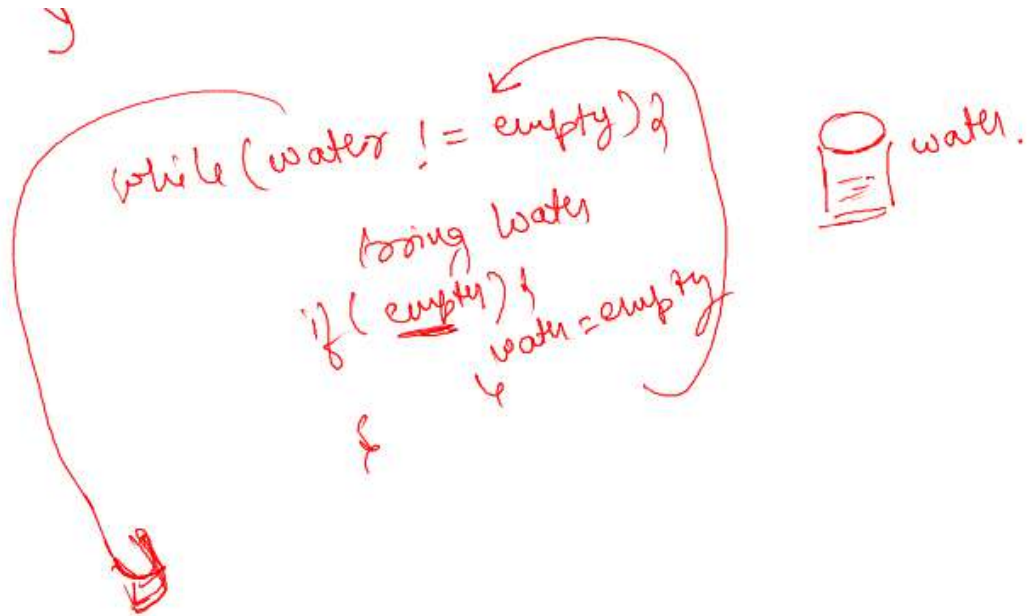 }
while (water != empty) {
bring water
if (empty) {
water = empty
}
}
water.